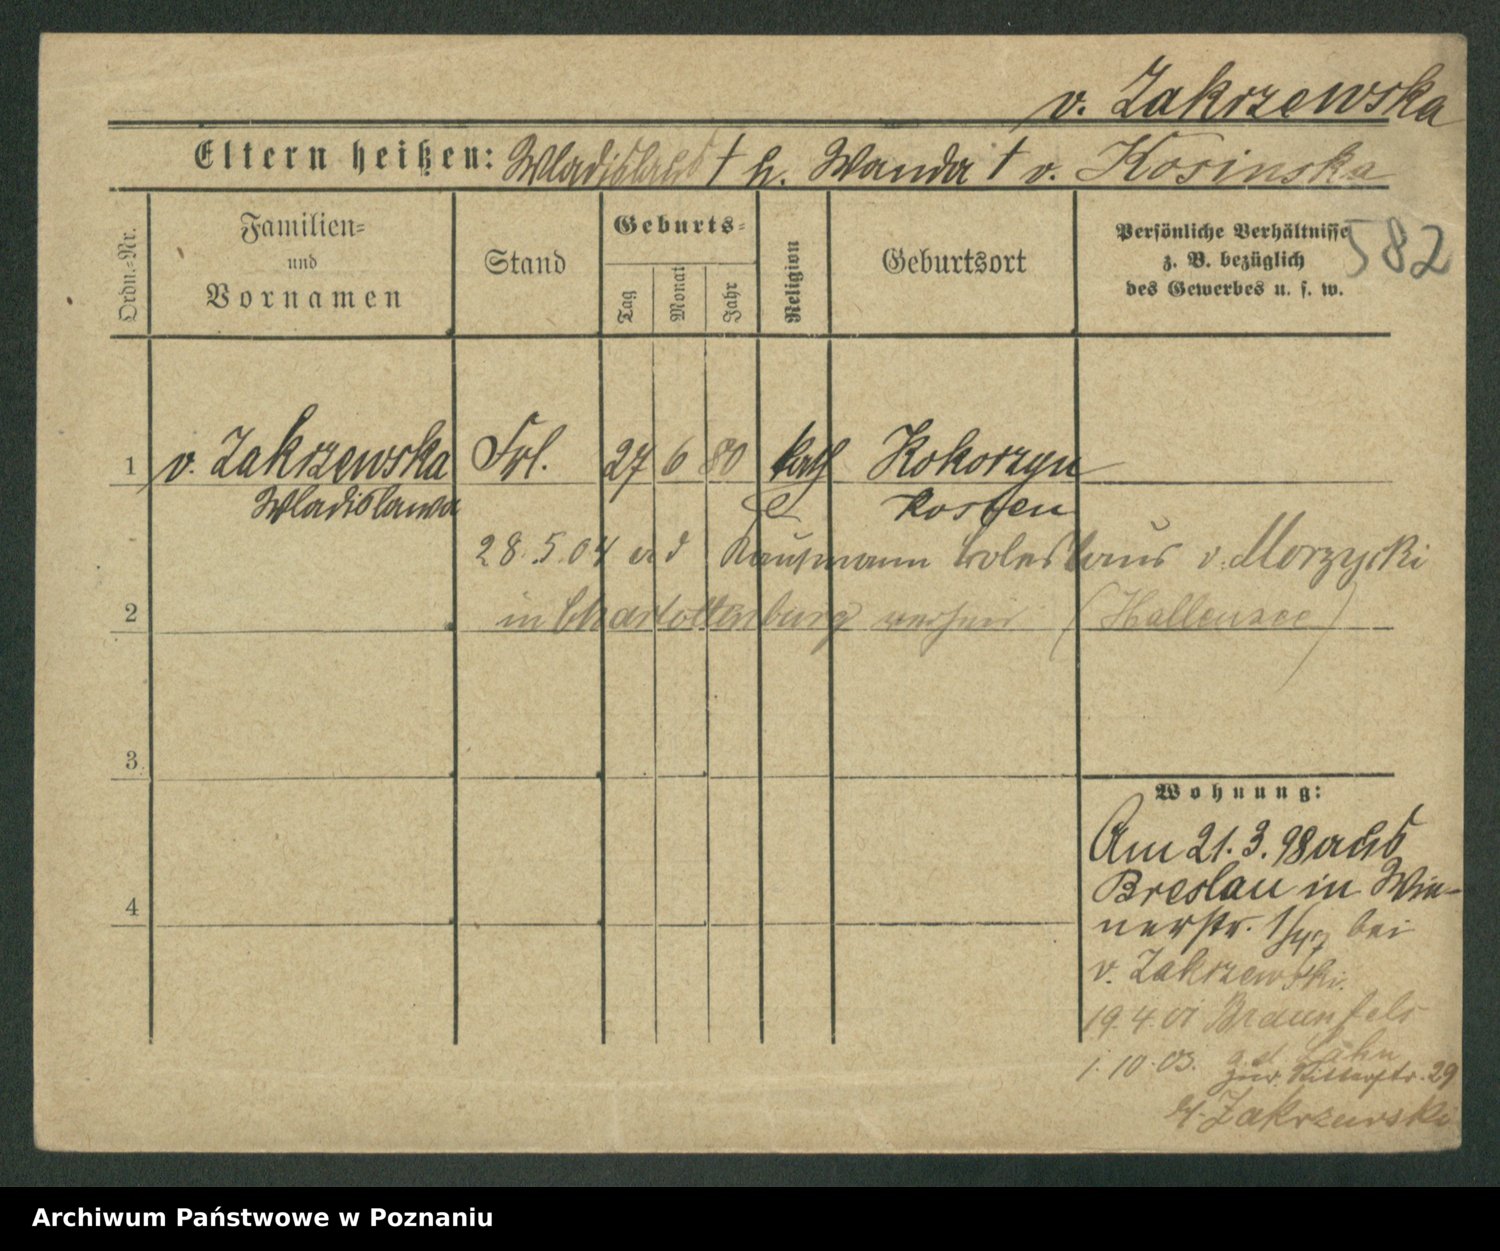 v. Zakrzewska
Eltern heißen: Wladislaus † u. Wanda † v. Kosinska
Ordn.-Nr.
Familien-
und
Vornamen
Stand
Geburts-
Tag
Monat
Jahr
Religion
Geburtsort
Persönliche Verhältnisse
z. B. bezüglich
des Gewerbes u. s. w.
582
1 v. Zakrzewska Frl. 27 6 80 kath Kokorzyn
Wladislawa Kosten
28.5.04 Kaufmann v. Morzycki
2 in Charlottenburg (Hallensee)
3
4
Wohnung:
Am 21.3.98 aus
Breslau in Wie-
nerstr. bei
v. Zakrzewski.
19.4.01 Braunfels
a.d. Lahn
1.10.03. zur. Ritterstr. 29
Zakrzewski
Archiwum Państwowe w Poznaniu